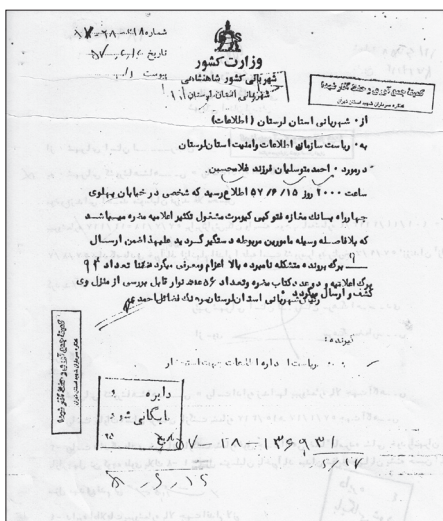 شماره
تاریخ
پیوست
وزارت کشور
شهربانی کشور شاهنشاهی
شهربانی استان لرستان
از : شهربانی استان لرستان (اطلاعات)
به : ریاست سازمان اطلاعات و امنیت استان لرستان
درمورد : احمد متوسلیان فرزند غلامحسین
ساعت ۲۰۰۰ روز ۵۷/۶/۱۵ اطلاع رسید که شخصی در خیابان پهلوی
چهارراه بانک مغازه فتوکپی کیورت مشغول تکثیر اعلامیه مضره میباشد
که بلافاصله وسیله مامورین مربوطه دستگیر گردید علیهذا ضمن ارسال
۹ برگ پرونده متشکله نامبرده بالا اعزام و معرفی میگردد ضمنا تعداد ۹۴
برگ اعلامیه و دو عدد کتاب مضره و تعداد ۵۶ عدد نوار قابل بررسی از منزل وی
کشف و ارسال میگردد
رئیس شهربانی استان لرستان سرهنگ فضائل احمدی
گیرنده :
ریاست اداره اطلاعات جهت استحضار
دایره
بایگانی شود
۵۷-۱۸-۱۳۶۹۳۱
۶/۱۷